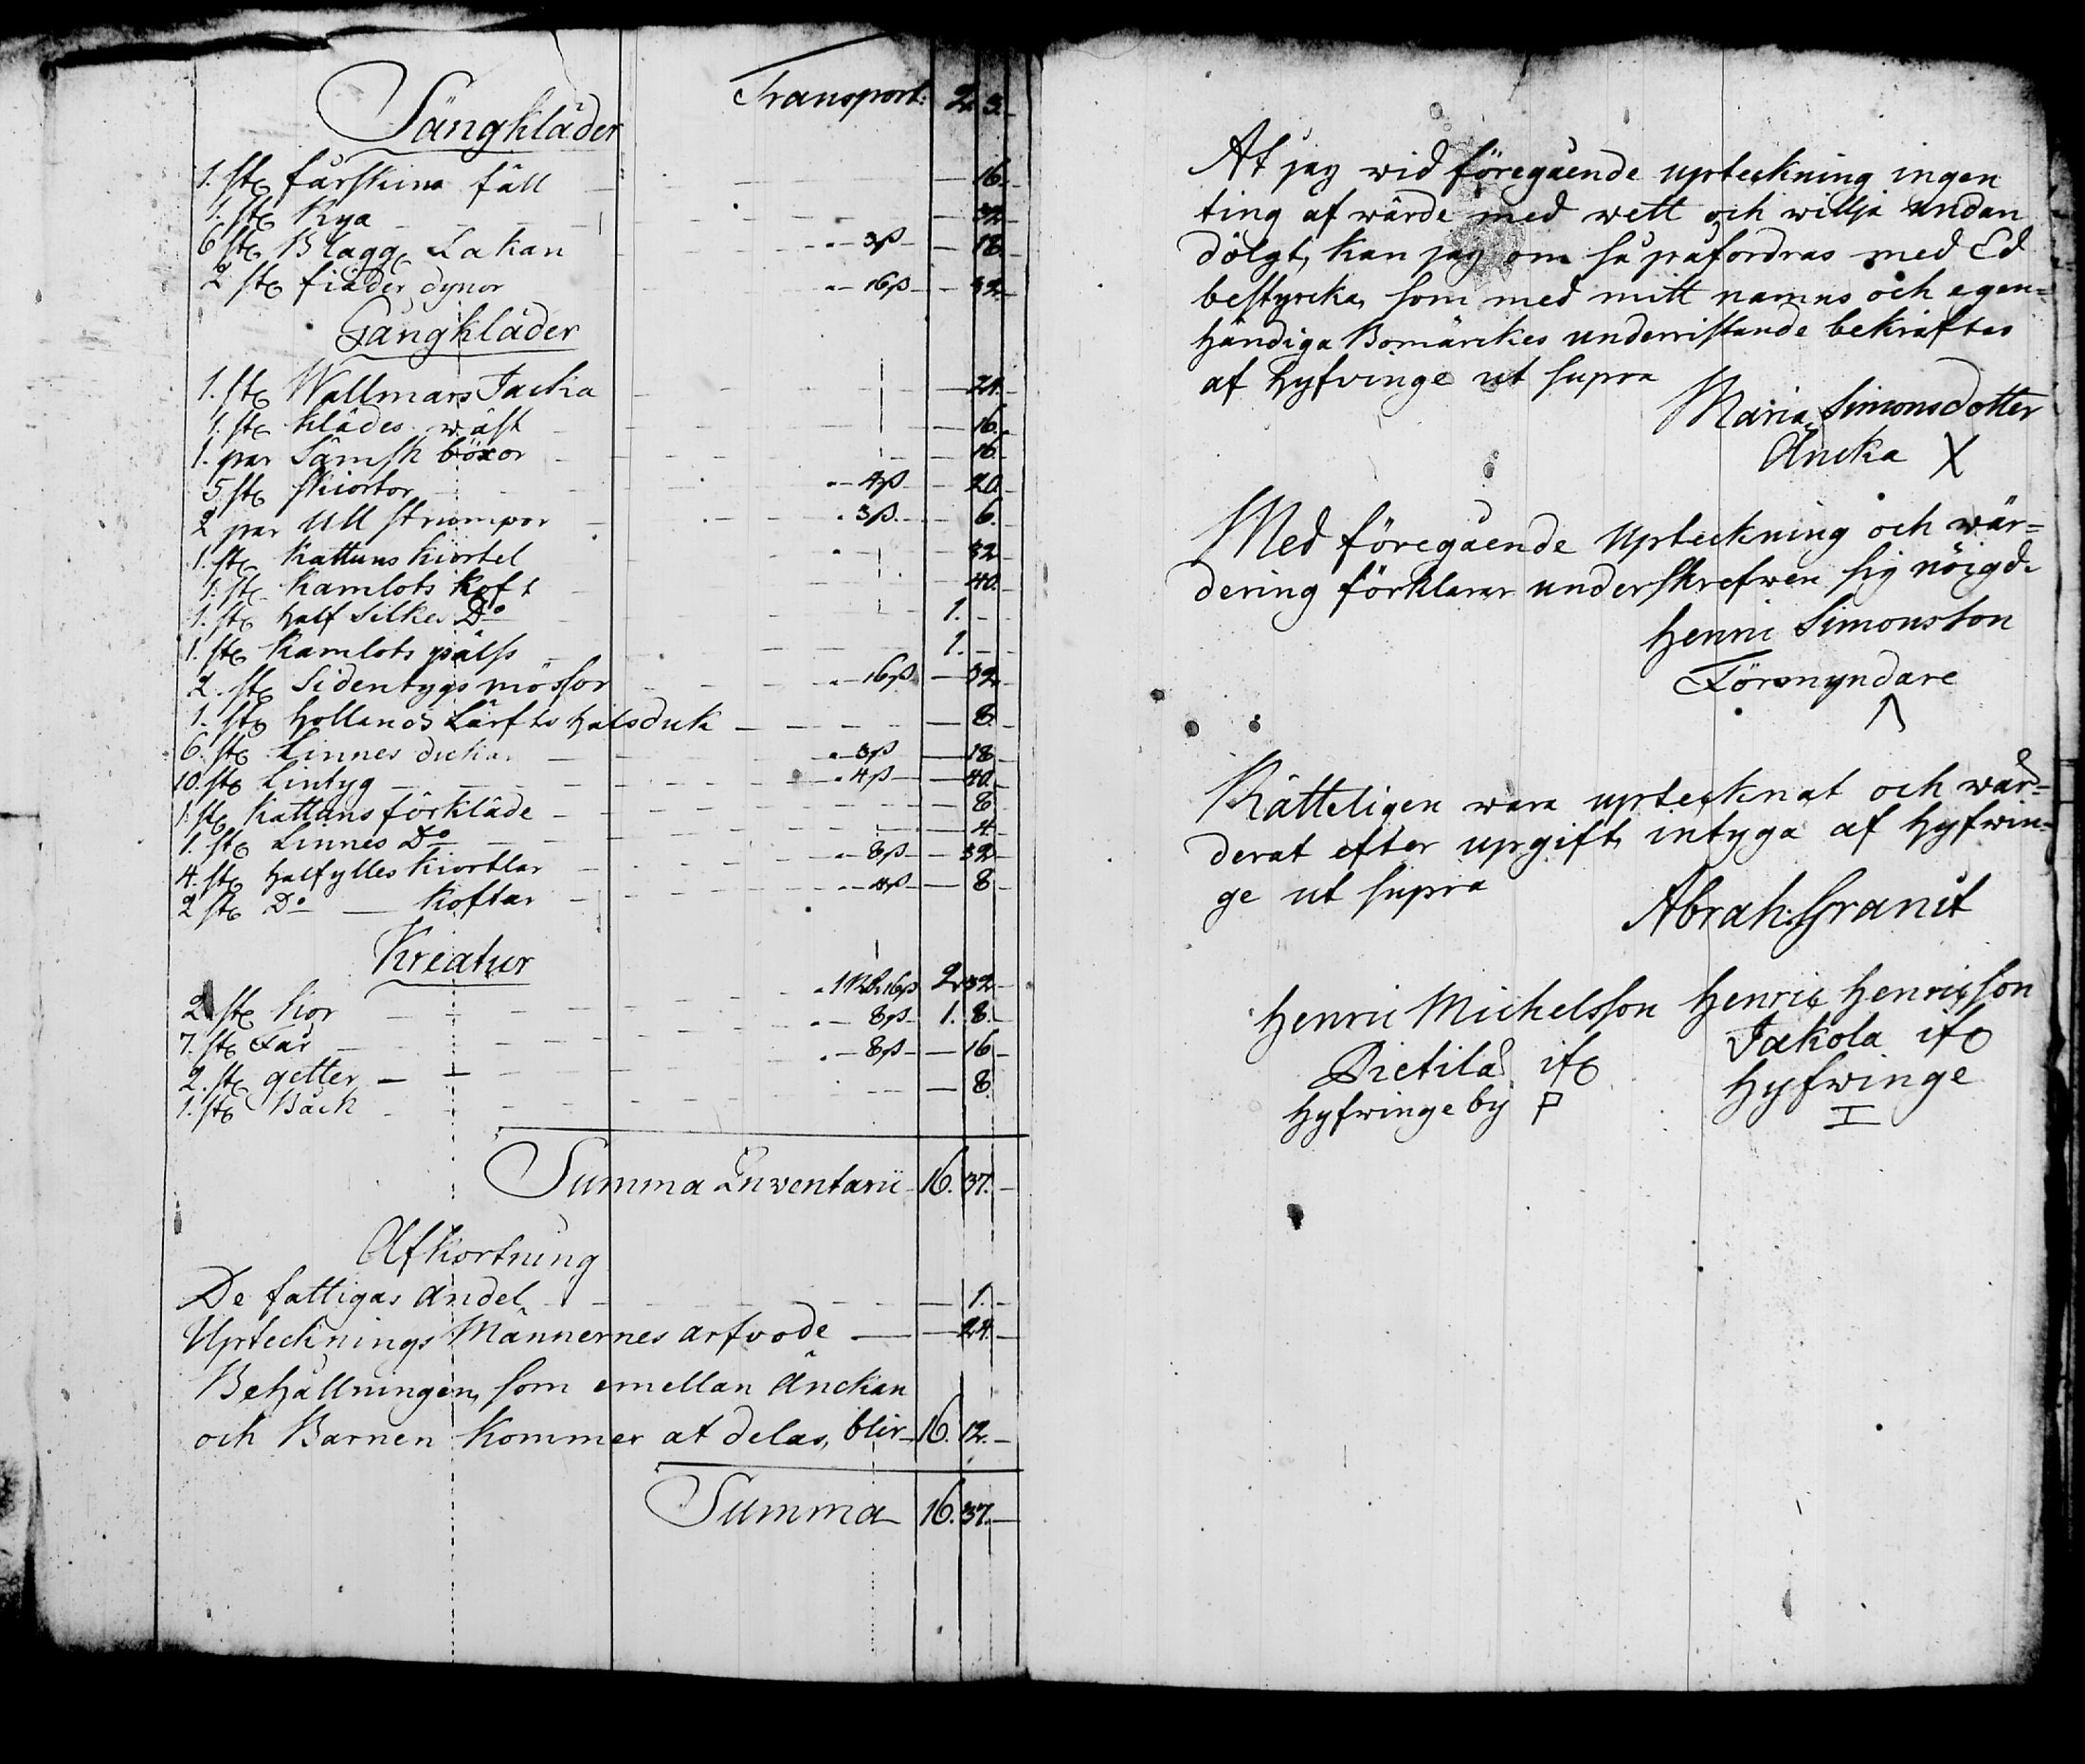 Transport. 2. 3.
Sängkläder
1. st. fårskins fäll 16.
1. st. Rya 32
6 st. Blagg. Lakan 3ß 18.
2 st. fiäder dynor 16ß 32
Gångkläder
1. st. Wallmars Jacka 24.
1. st. klädes wäst 16.
1. par Sämsk böxor 16.
5 st. skiortor 4ß 20.
2 par Ull strumpor 3ß. 6.
1. st. Kattuns kiortel 32
1. st. Kamlots Koft 40.
1. st. half Silkes Do 1.
1. st. Kamlots päls 1.
2. st. Sidentygs mössor 16ß 32
1. st. Hollands Lärfts halsduk 8.
6. st. Linnes dukar 3ß 18
10. st. Lintyg 4ß 40.
1 st. Kattuns förkläde 8
1. st. Linnes Do 4
4. st. halfylles Kiortlar 8ß 32
2 st. Do Koftar 4ß 8
Kreatur
2. st. Kor 1 Rd. 16ß 2 32
7. st. Får 8ß 1. 8.
2. st. getter 8ß 16
1. st. Båck 8.
Summa Inventarii 16. 37.
Afkortning
De fattigas andel 1.
Upteknings Männernes arfvode 24.
Behållningen, som emellan Änckan
och Barnen kommer at delas, blir 16. 12.
Summa 16. 37.
At jag wid föregående upteckning ingen
ting af wärde med wett och wilja undan
dölgt, kan jag om så påfordras med Ed
bestyrcka, som med mitt namns och egen=
händiga Bomärckes underristande bekräftes
af Hyfvinge ut supra
Maria Simonsdotter
Äncka X
Med föregående Upteckning och wär=
dering förklarar underskrefwen sig nöigd.
Henric Simonsson
Förmyndare
Rätteligen wara uptecknat och wär=
derat efter upgift, intyga af Hyfwin=
ge ut supra
Abrah. Granit
Henric Michelsson Henric Henricsson
Pietilä if. Jakola if.
Hyfwinge by P Hyfwinge
I